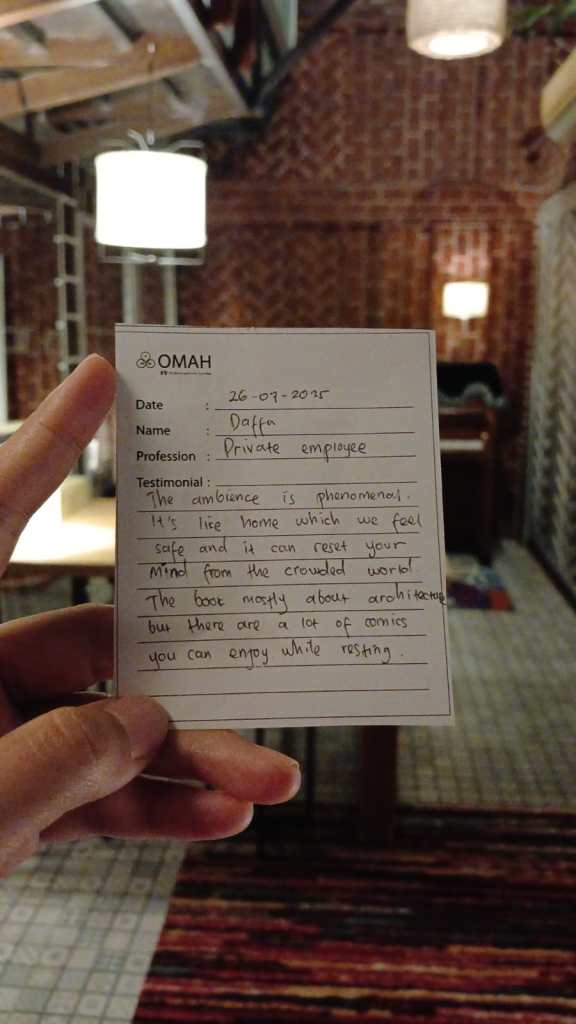 OMAH
Date : 26-07-2025
Name : Daffa
Profession : Private employee
Testimonial :
The ambience is phenomenal.
It's like home which we feel
safe and it can reset your
mind from the crowded world.
The book mostly about architecture
but there are a lot of comics
you can enjoy while resting.